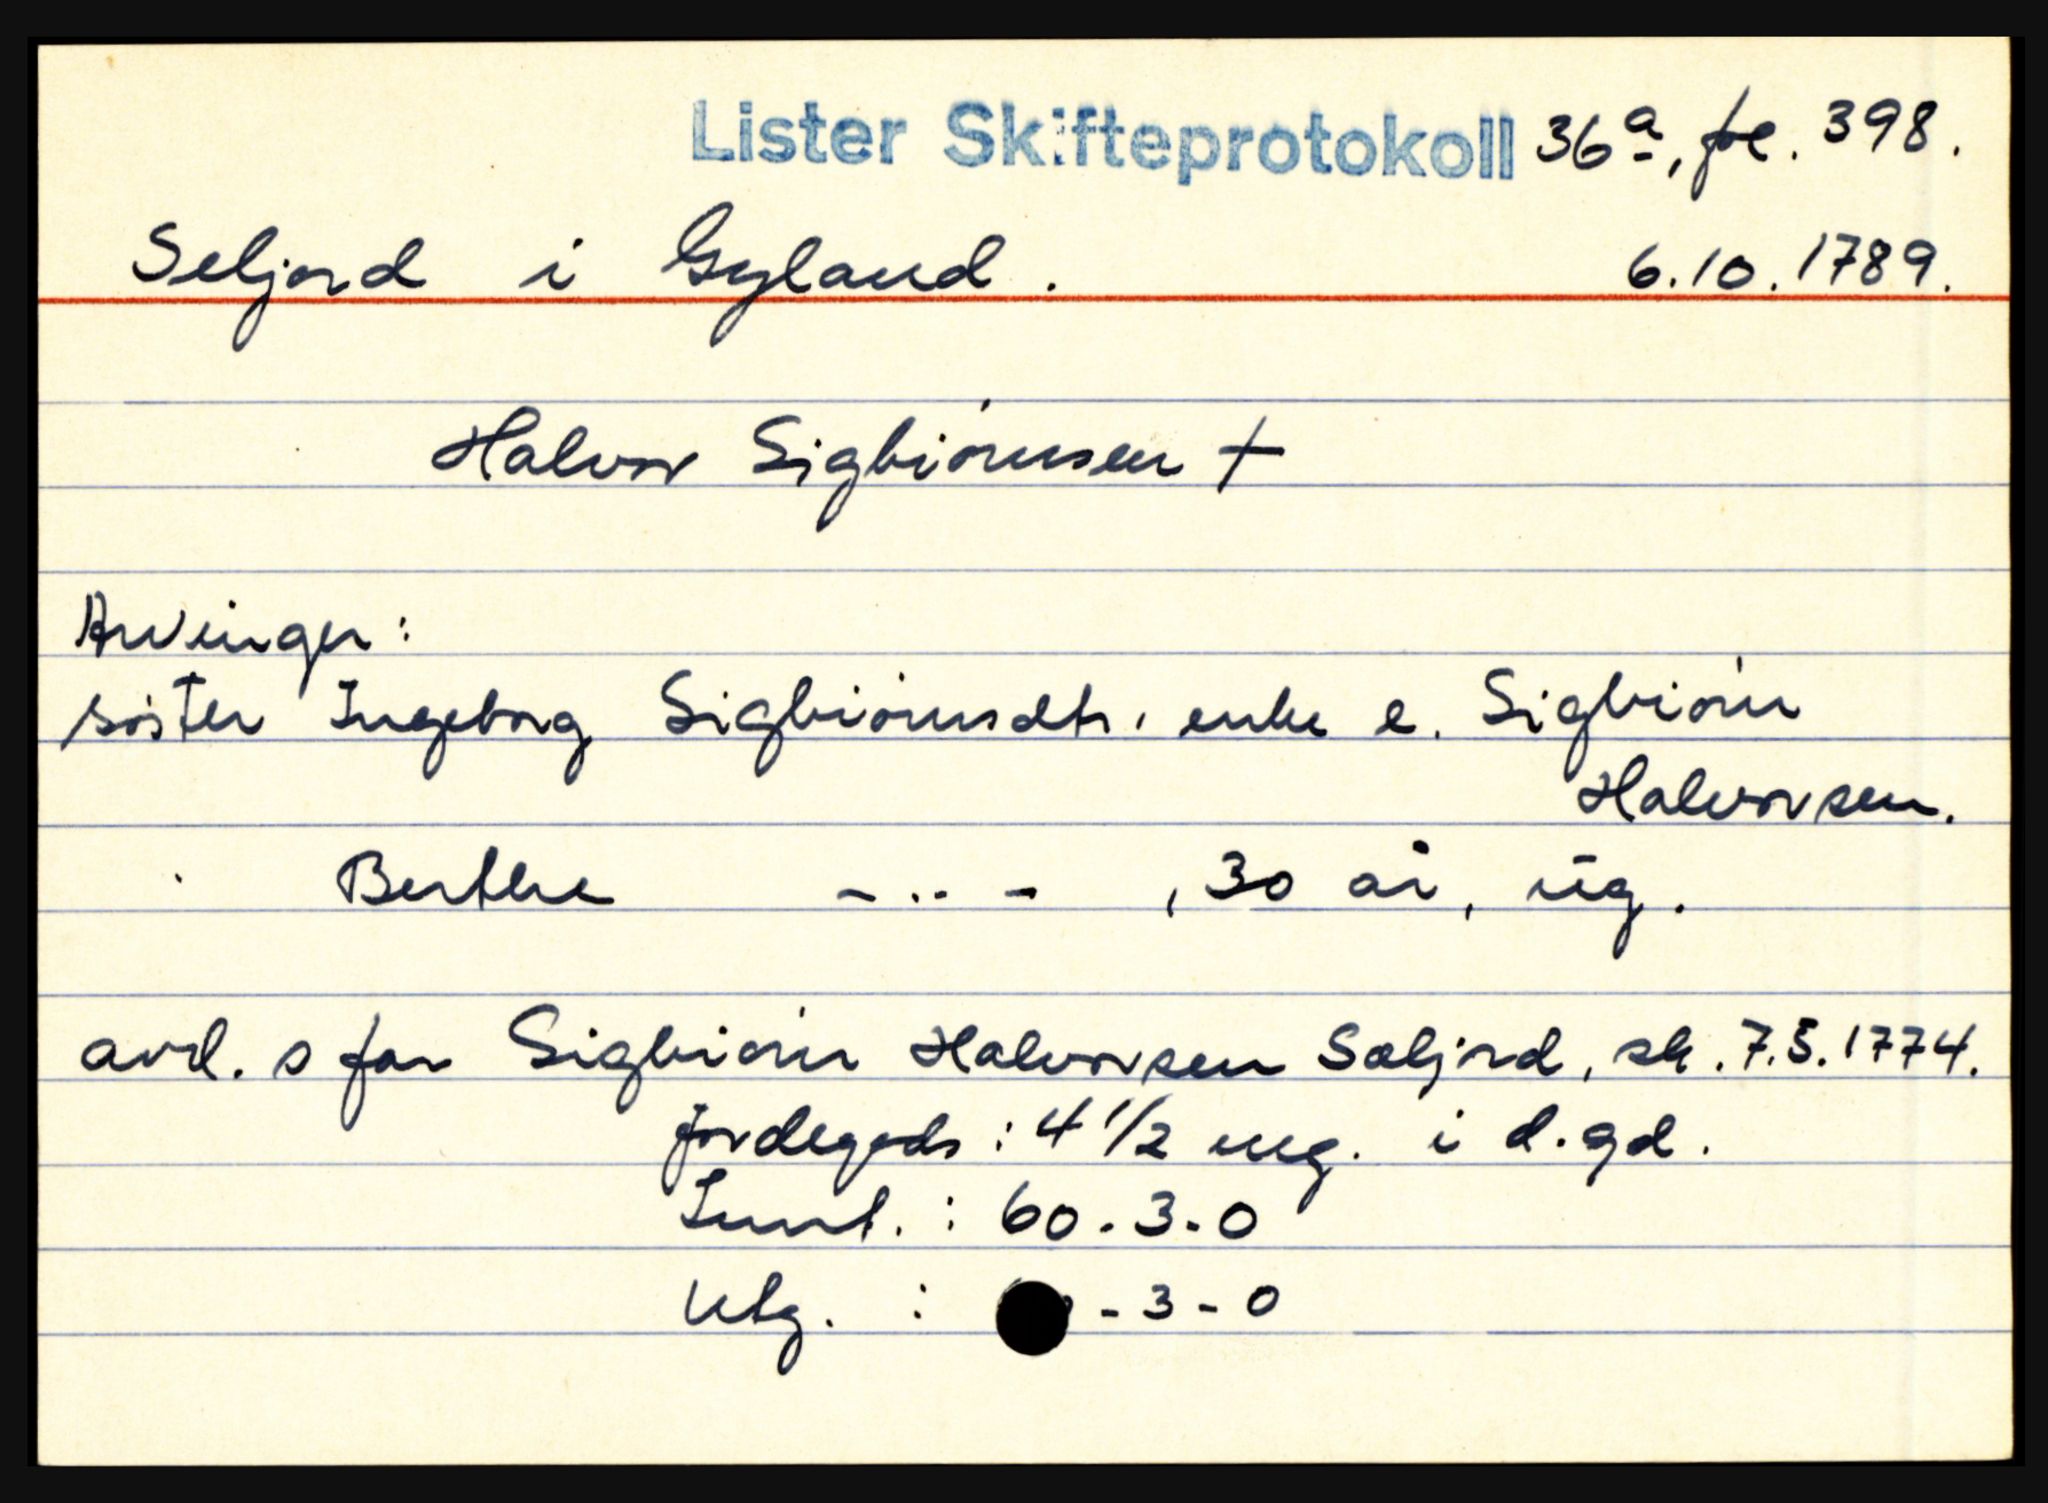 Lister Skifteprotokoll 36a, fol. 398.
Seljord i Gyland. 6.10.1789.
Halvor Sigbiörnsen †
Arvinger:
söster Ingeborg Sigbiörnsdtr. enke e. Sigbiörn
Halvorsen.
Berthe - .. - , 30 år, ug.
avd. s far Sigbiörn Halvorsen Sæljord, sk. 7.5.1774.
Jordegods: 4 1/2 mg. i d. gd.
Innt. : 60-3-0
Utg. : -3-0